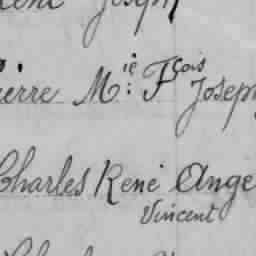 René Joseph
Pierre M.ie F.çois Joseph
Charles René Ange
Vincent